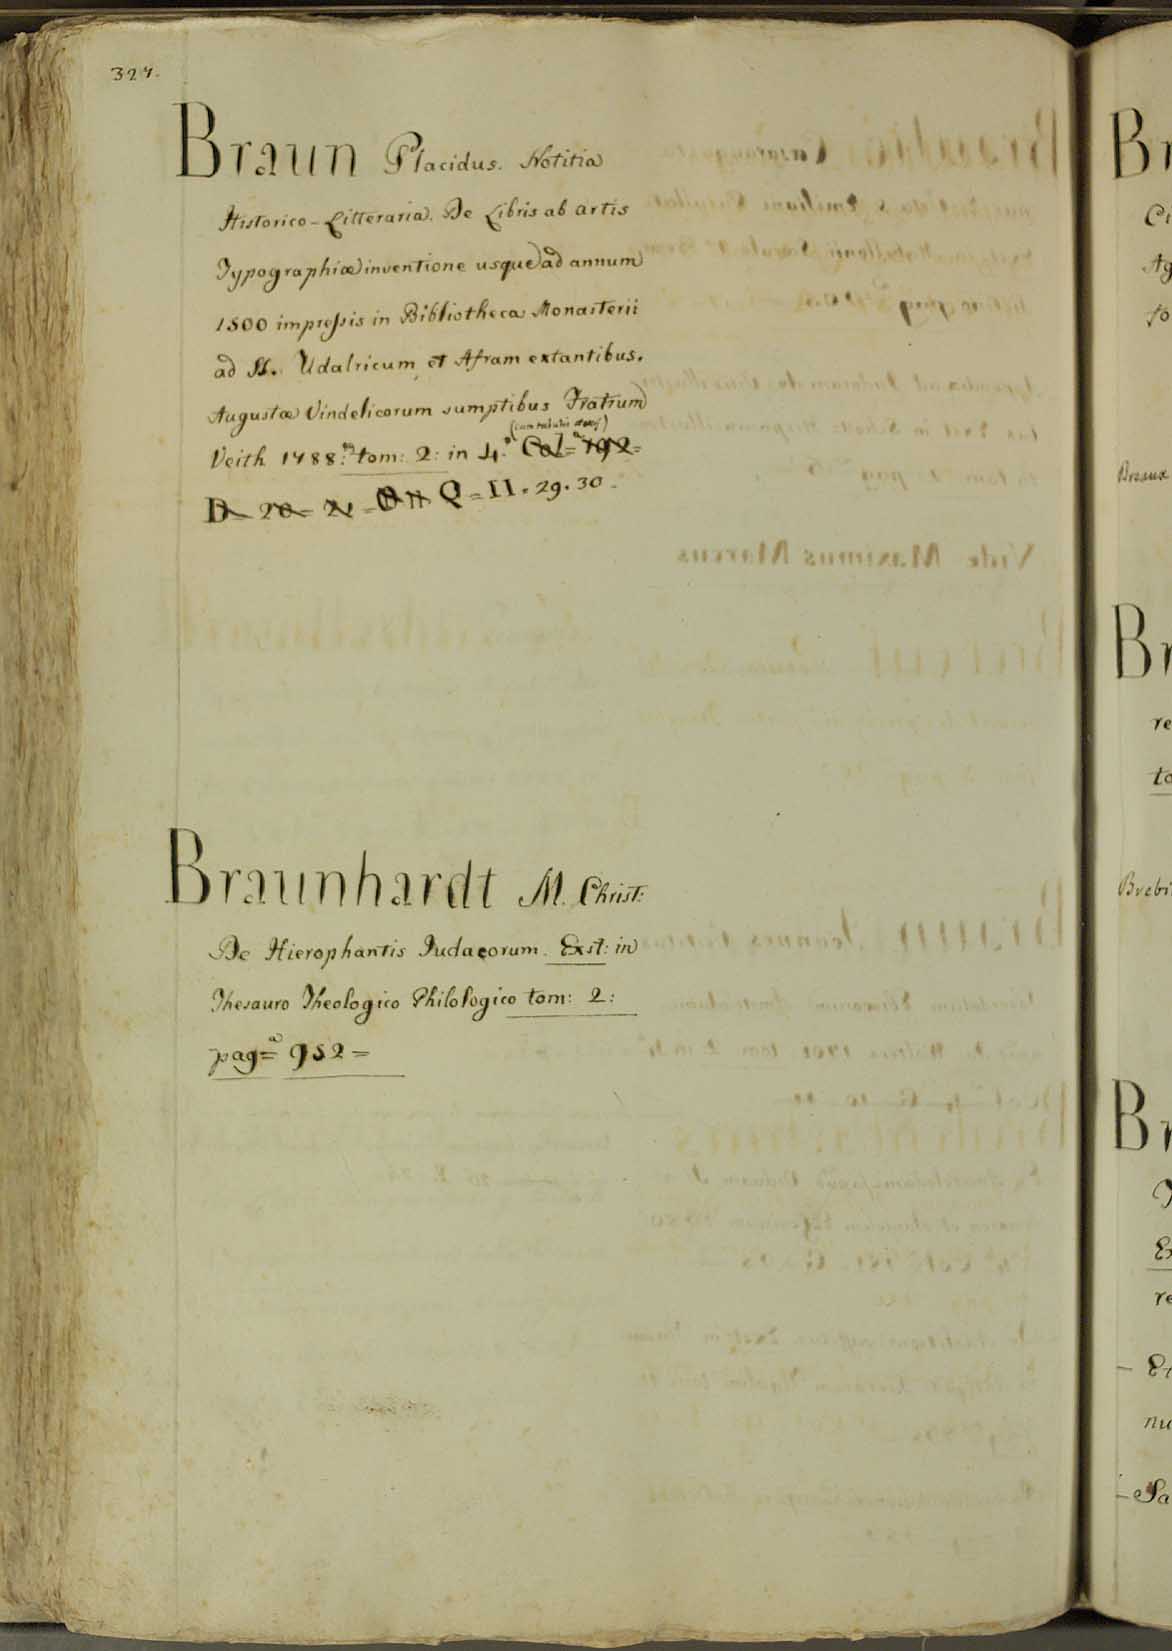 327.
Braun Placidus. Notitia
Historico-Litteraria. De Libris ab artis
Typographiæ inventione usque ad annum
1500 impressis in Bibliotheca Monasterii
ad SS. Udalricum et Afram extantibus.
Augustæ Vindelicorum sumptibus Fratrum
(cum tabulis
Veith 1788. tom: 2: in 4.º Col= 192=
D= 20= 21= Q=II.29.30.
Braunhardt M. Christ:
De Hierophantis Judaeorum. Exst: in
Thesauro Theologico Philologico tom: 2:
pag=ª 952=
Br
Ag
fo
Breaux
Br
re
to
Brebi
Br
Ex
re
- Et
nu
- Sa